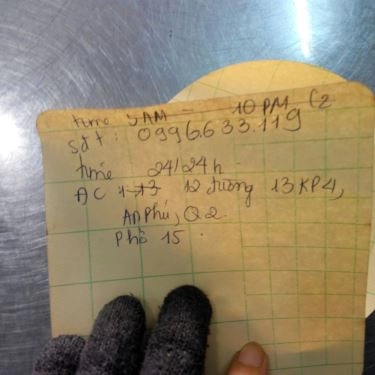 time 5 AM - 10 PM (2
sđt: 0996.633.119
time 24/24h
ĐC 12 đường 13 KP4,
An Phú, Q2.
Phố 15.